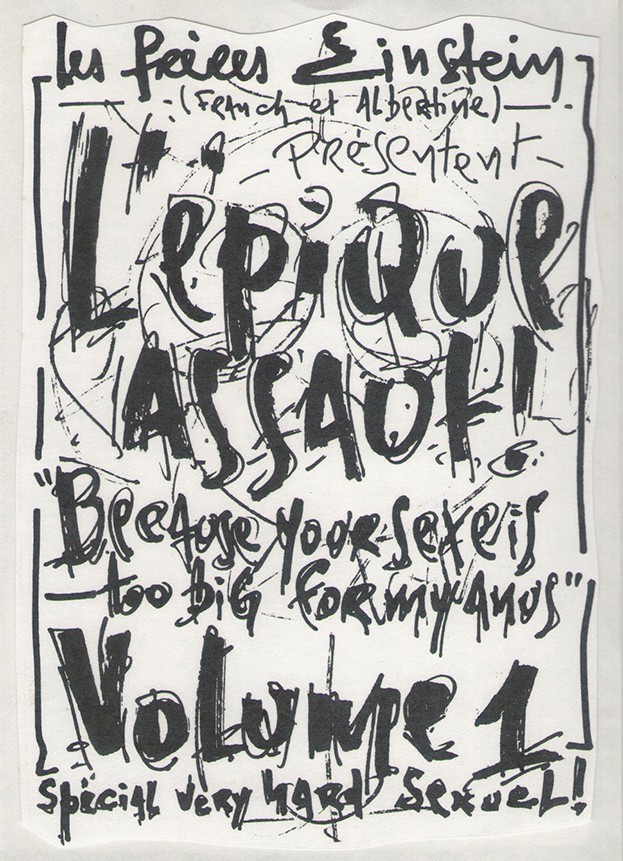 les frères Einstein
(Franch et Albertine)
Présentent
L'épique
ASSAUT!
"Because your sexe is
too big for my anus"
Volume 1
Spécial very hard Sexuel!